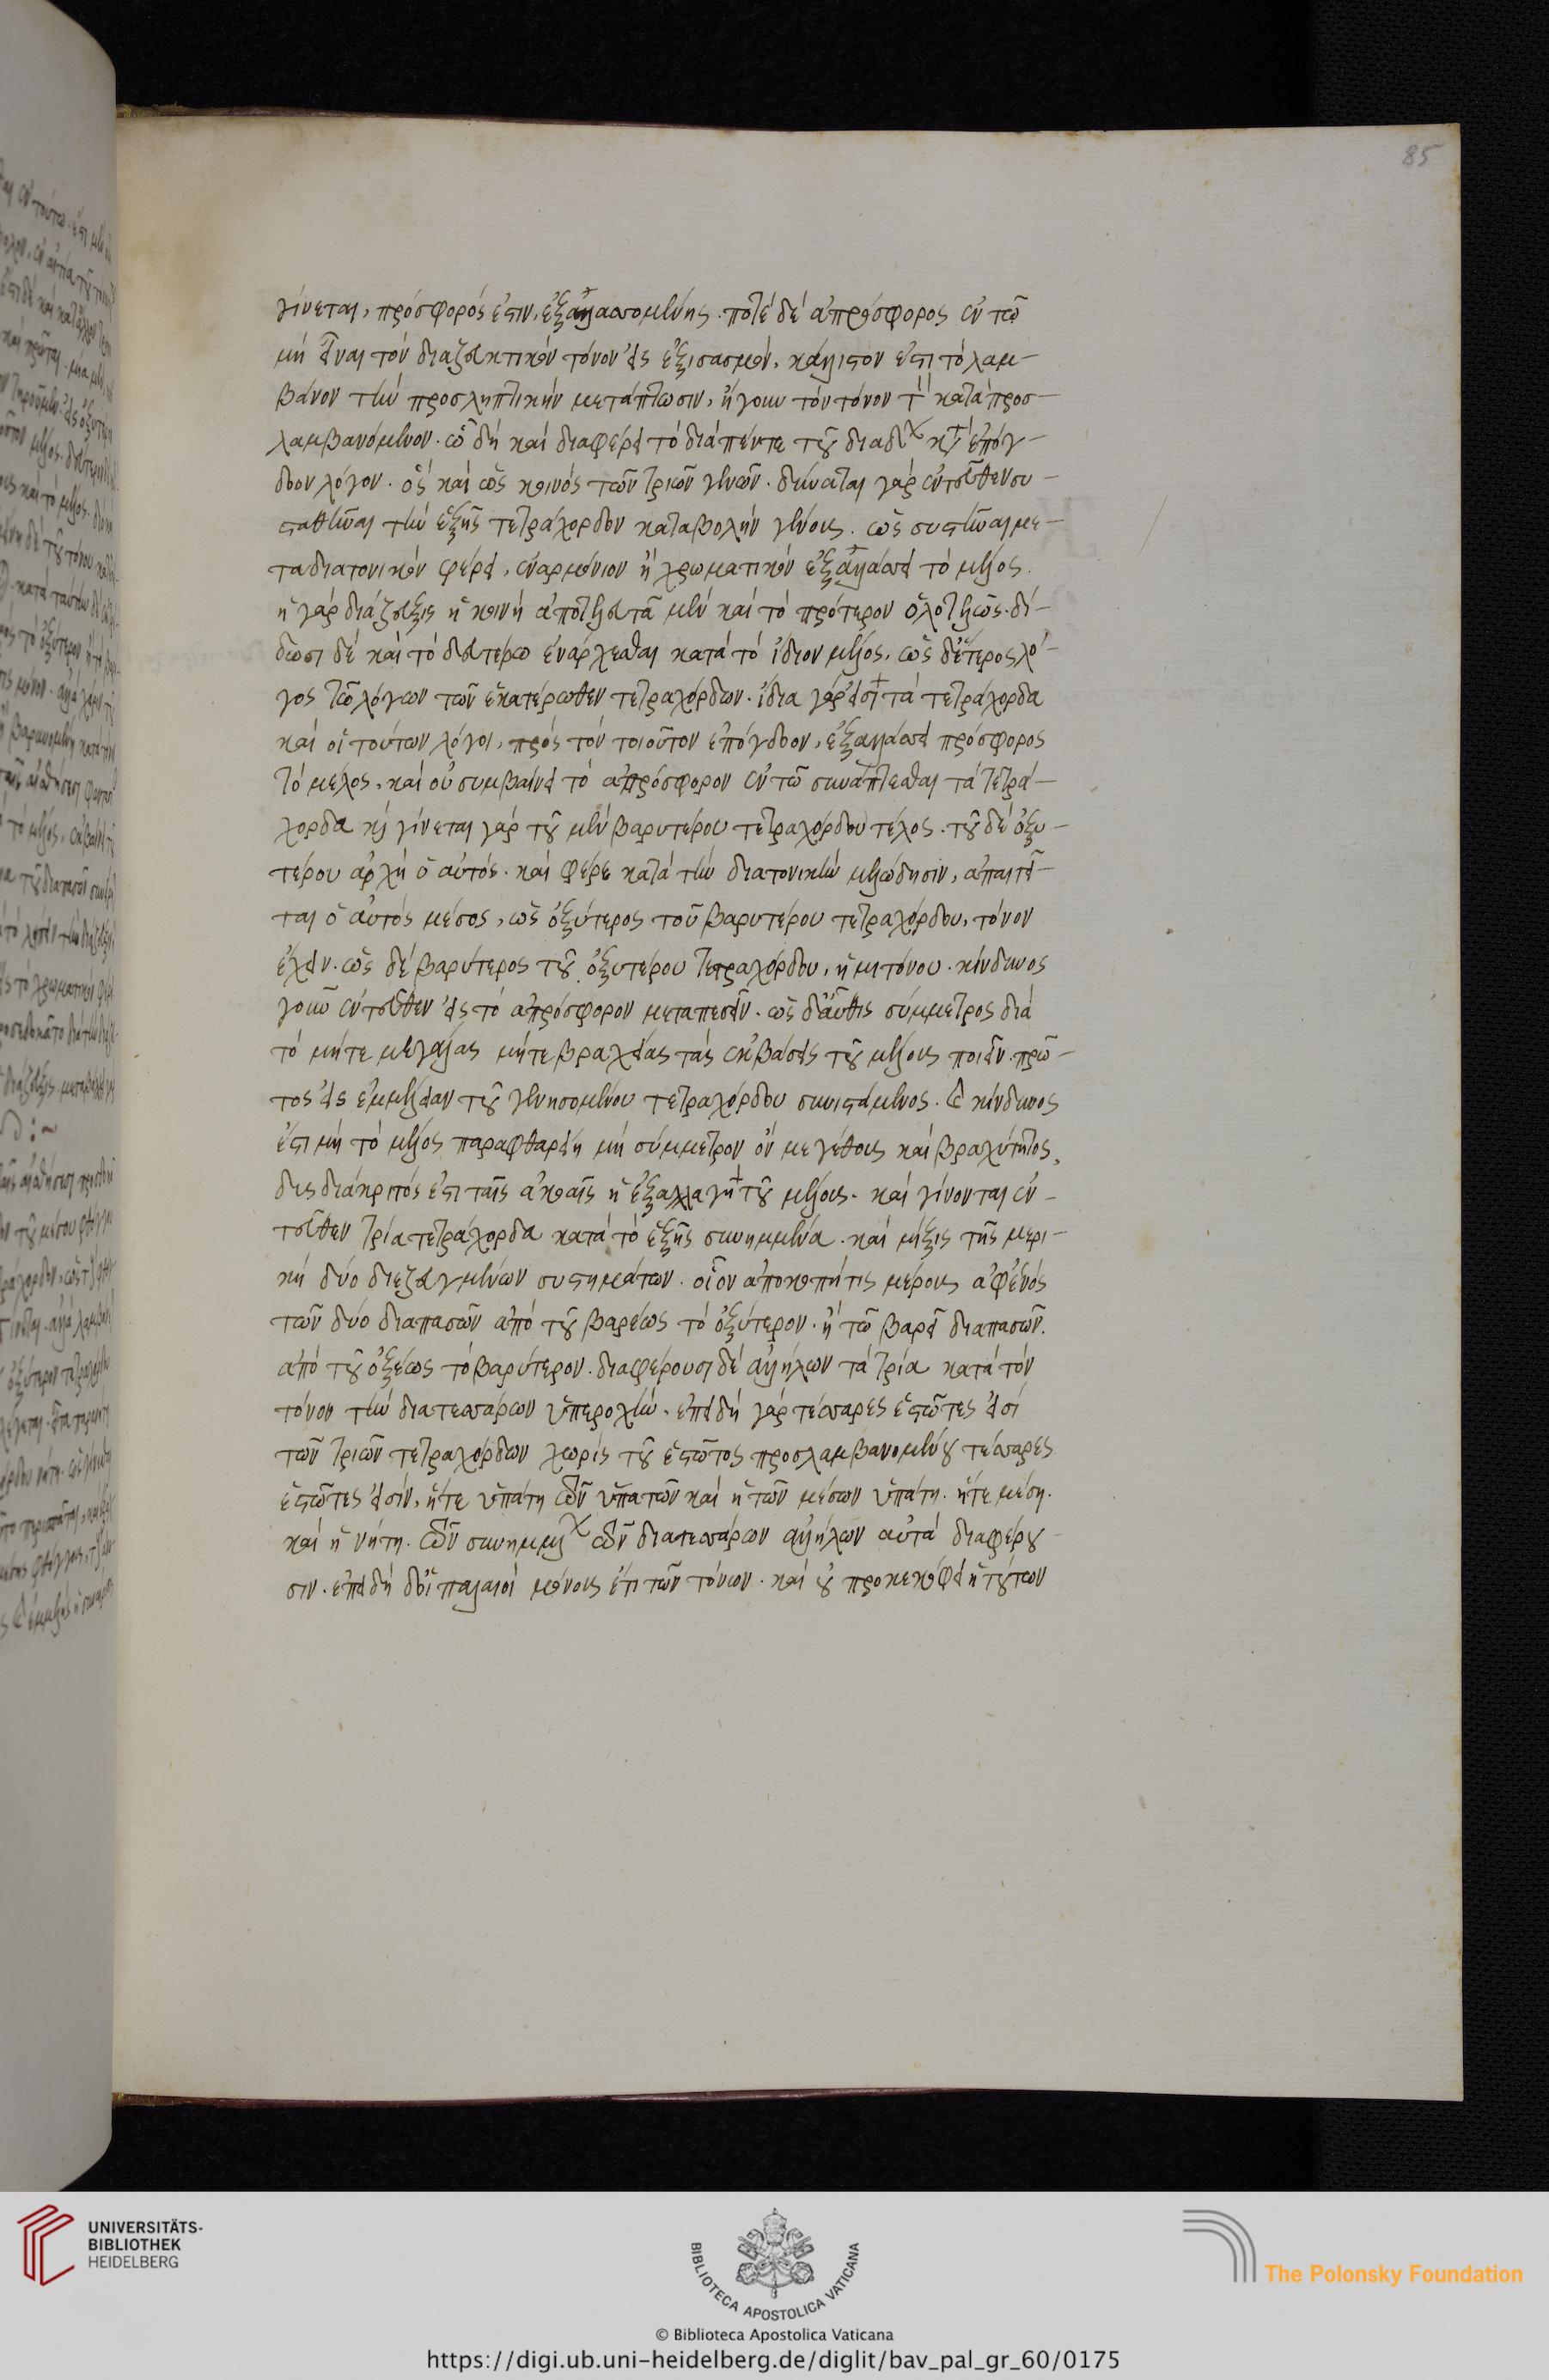 85
γίνεται, πρόσφορός ἐστιν, ἐξαλλασσομένης. ποτὲ δὲ ἀπρόσφορος ἐν τῶ
μὴ εἶναι τὸν διαζευκτικὸν τόνον εἰς ἐξισασμόν. κάλλιστον ἐστὶ τὸ λαμ-
βάνον τὴν προσληπτικὴν μετάπτωσιν, ἤγουν τὸν τόνον τὸν κατὰ προσ-
λαμβανόμενον. ὧ δὴ καὶ διαφέρει τὸ διὰ πέντε τοῦ διὰ δ κτ ἐπόγ-
δοον λόγον. ὃς καὶ ὡς κοινὸς τῶν τριῶν γενῶν. δύναται γὰρ ἐντεῦθεν συ-
σταθῆναι τὴν ἑξῆς τετράχορδον καταβολὴν γένους. ὡς συστῆναι με-
τὰ διατονικὸν φέρει, ἐναρμόνιον ἢ χρωματικὸν ἐξαλλάσσει τὸ μέλος.
ἡ γὰρ διάζευξις ἡ κοινὴ ἀποτελευτᾶ μὲν καὶ τὸ πρότερον ὁλοτελῶς. δί-
δωσι δὲ καὶ τὸ δευτέρω ἐνάρχεσθαι κατὰ τὸ ἴδιον μέλος. ὡς δ' ἕτερος λό-
γος τῶ λόγων τῶν ἑκατέρωθεν τετραχόρδων. ἴδια γάρ εἰσι τὰ τετράχορδα
καὶ οἱ τούτων λόγοι, πρὸς τὸν τοιοῦτον ἐπόγδοον, ἐξαλλάσσει πρόσφορος
τὸ μέλος, καὶ οὐ συμβαίνει τὸ ἀπρόσφορον ἐν τῶ συνάπτεσθαι τὰ τετρά-
χορδα κ γίνεται γὰρ τοῦ μὲν βαρυτέρου τετραχόρδου τέλος. τοῦ δὲ ὀξυ-
τέρου ἀρχὴ ὁ αὐτός. καὶ φέρε κατὰ τὴν διατονικὴν μελώδησιν, ἀπαιτεῖ-
ται ὁ αὐτὸς μέσος, ὡς ὀξύτερος τοῦ βαρυτέρου τετραχόρδου, τόνον
ἔχειν. ὡς δὲ βαρύτερος τοῦ ὀξυτέρου τετραχόρδου, ἡμιτόνου. κίνδυνος
γοῦν ἐντεῦθεν εἰς τὸ ἀπρόσφορον μεταπεσεῖν. ὡς δ' αὖθις σύμμετρος διὰ
τὸ μήτε μεγάλας μήτε βραχείας τὰς ἐκβάσεις τοῦ μέλους ποιεῖν. πρῶ-
τος εἰς ἐμμέλειαν τοῦ γενησομένου τετραχόρδου συνιστάμενος. καὶ κίνδυνος
ἐστὶ μὴ τὸ μέλος παραφθαρείη μὴ σύμμετρον ὂν μεγέθους καὶ βραχύτητος,
δυσδιάκριτός ἐστι ταῖς ἀκοαῖς ἡ ἐξαλλαγὴ τοῦ μέλους. καὶ γίνονται ἐν-
τεῦθεν τρία τετράχορδα κατὰ τὸ ἑξῆς συνημμένα. καὶ μίξις τῆς μερι-
κὴ δύο διεζευγμένων συστημάτων. οἷον ἀποκοπή τις μέρους ἀφ' ἑνὸς
τῶν δύο διαπασῶν ἀπὸ τοῦ βαρέως τὸ ὀξύτερον. ἢ τῶ βαρεῖ διαπασῶν.
ἀπὸ τοῦ ὀξέως τὸ βαρύτερον. διαφέρουσι δὲ ἀλλήλων τὰ τρία κατὰ τὸν
τόνον τὴν διατεσσάρων ὑπεροχήν. ἐπειδὴ γὰρ τέσσαρες ἑστῶτες εἰσὶ
τῶν τριῶν τετραχόρδων χωρὶς τοῦ ἑστῶτος προσλαμβανομένου τέσσαρες
ἑστῶτες εἰσίν, ἥτε ὑπάτη τῶν ὑπατῶν καὶ ἡ τῶν μέσων ὑπάτη. ἥτε μέση.
καὶ ἡ νήτη. τῶν συνημμ τῶν διατεσσάρων ἀλλήλων αὐτὰ διαφέρου-
σιν. ἐπειδὴ δὲ οἱ παλαιοὶ μόνους ἐπὶ τῶν τόνων. καὶ οὐ προκεκόφει ἡ τούτων
UNIVERSITÄTS-
BIBLIOTHEK
HEIDELBERG
BIBLIOTECA APOSTOLICA VATICANA
The Polonsky Foundation
© Biblioteca Apostolica Vaticana
https://digi.ub.uni-heidelberg.de/diglit/bav_pal_gr_60/0175